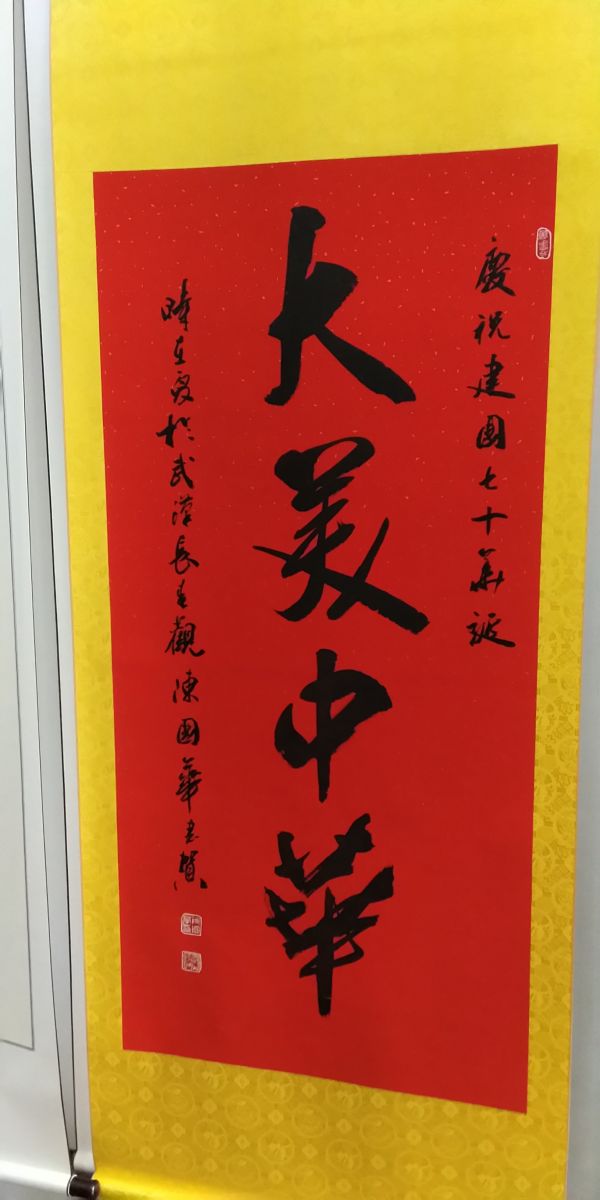 慶祝建國七十華誕
大美中華
時在夏於武漢長春觀陳國華書賀